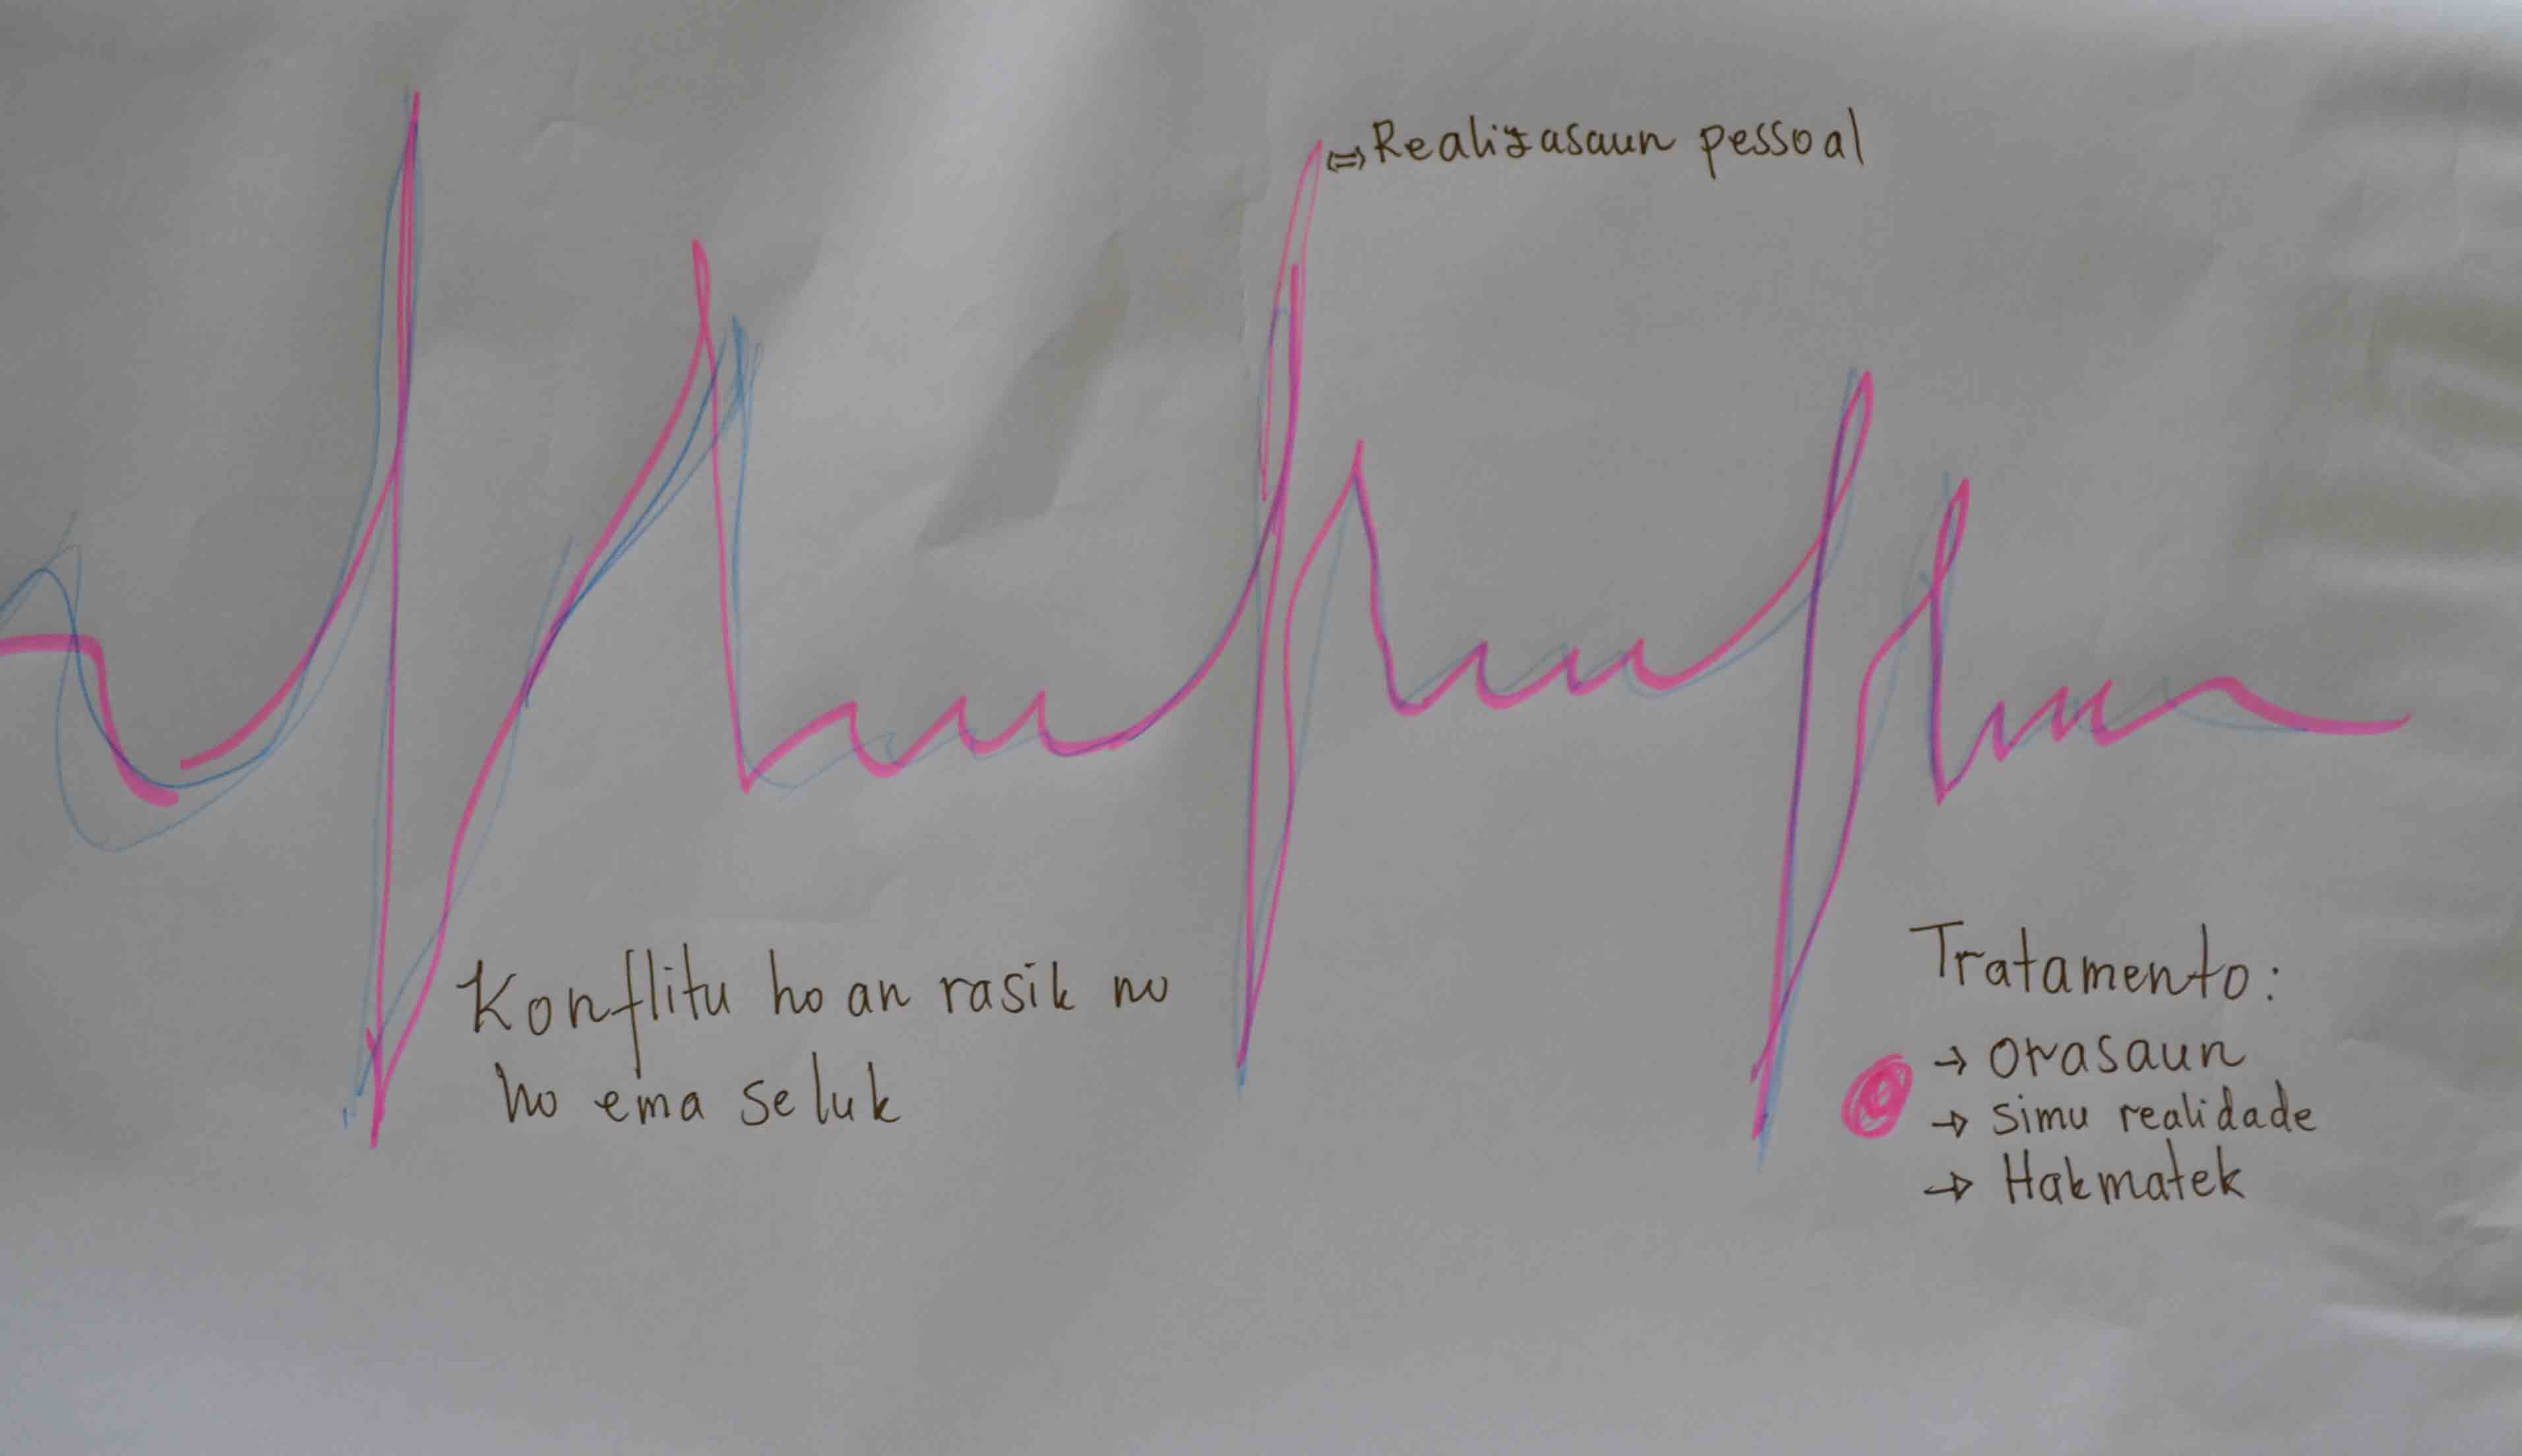 ⇒ Realizasaun pessoal
Konflitu ho an rasik no
ho ema seluk
Tratamento:
→ Orasaun
→ Simu realidade
→ Hakmatek